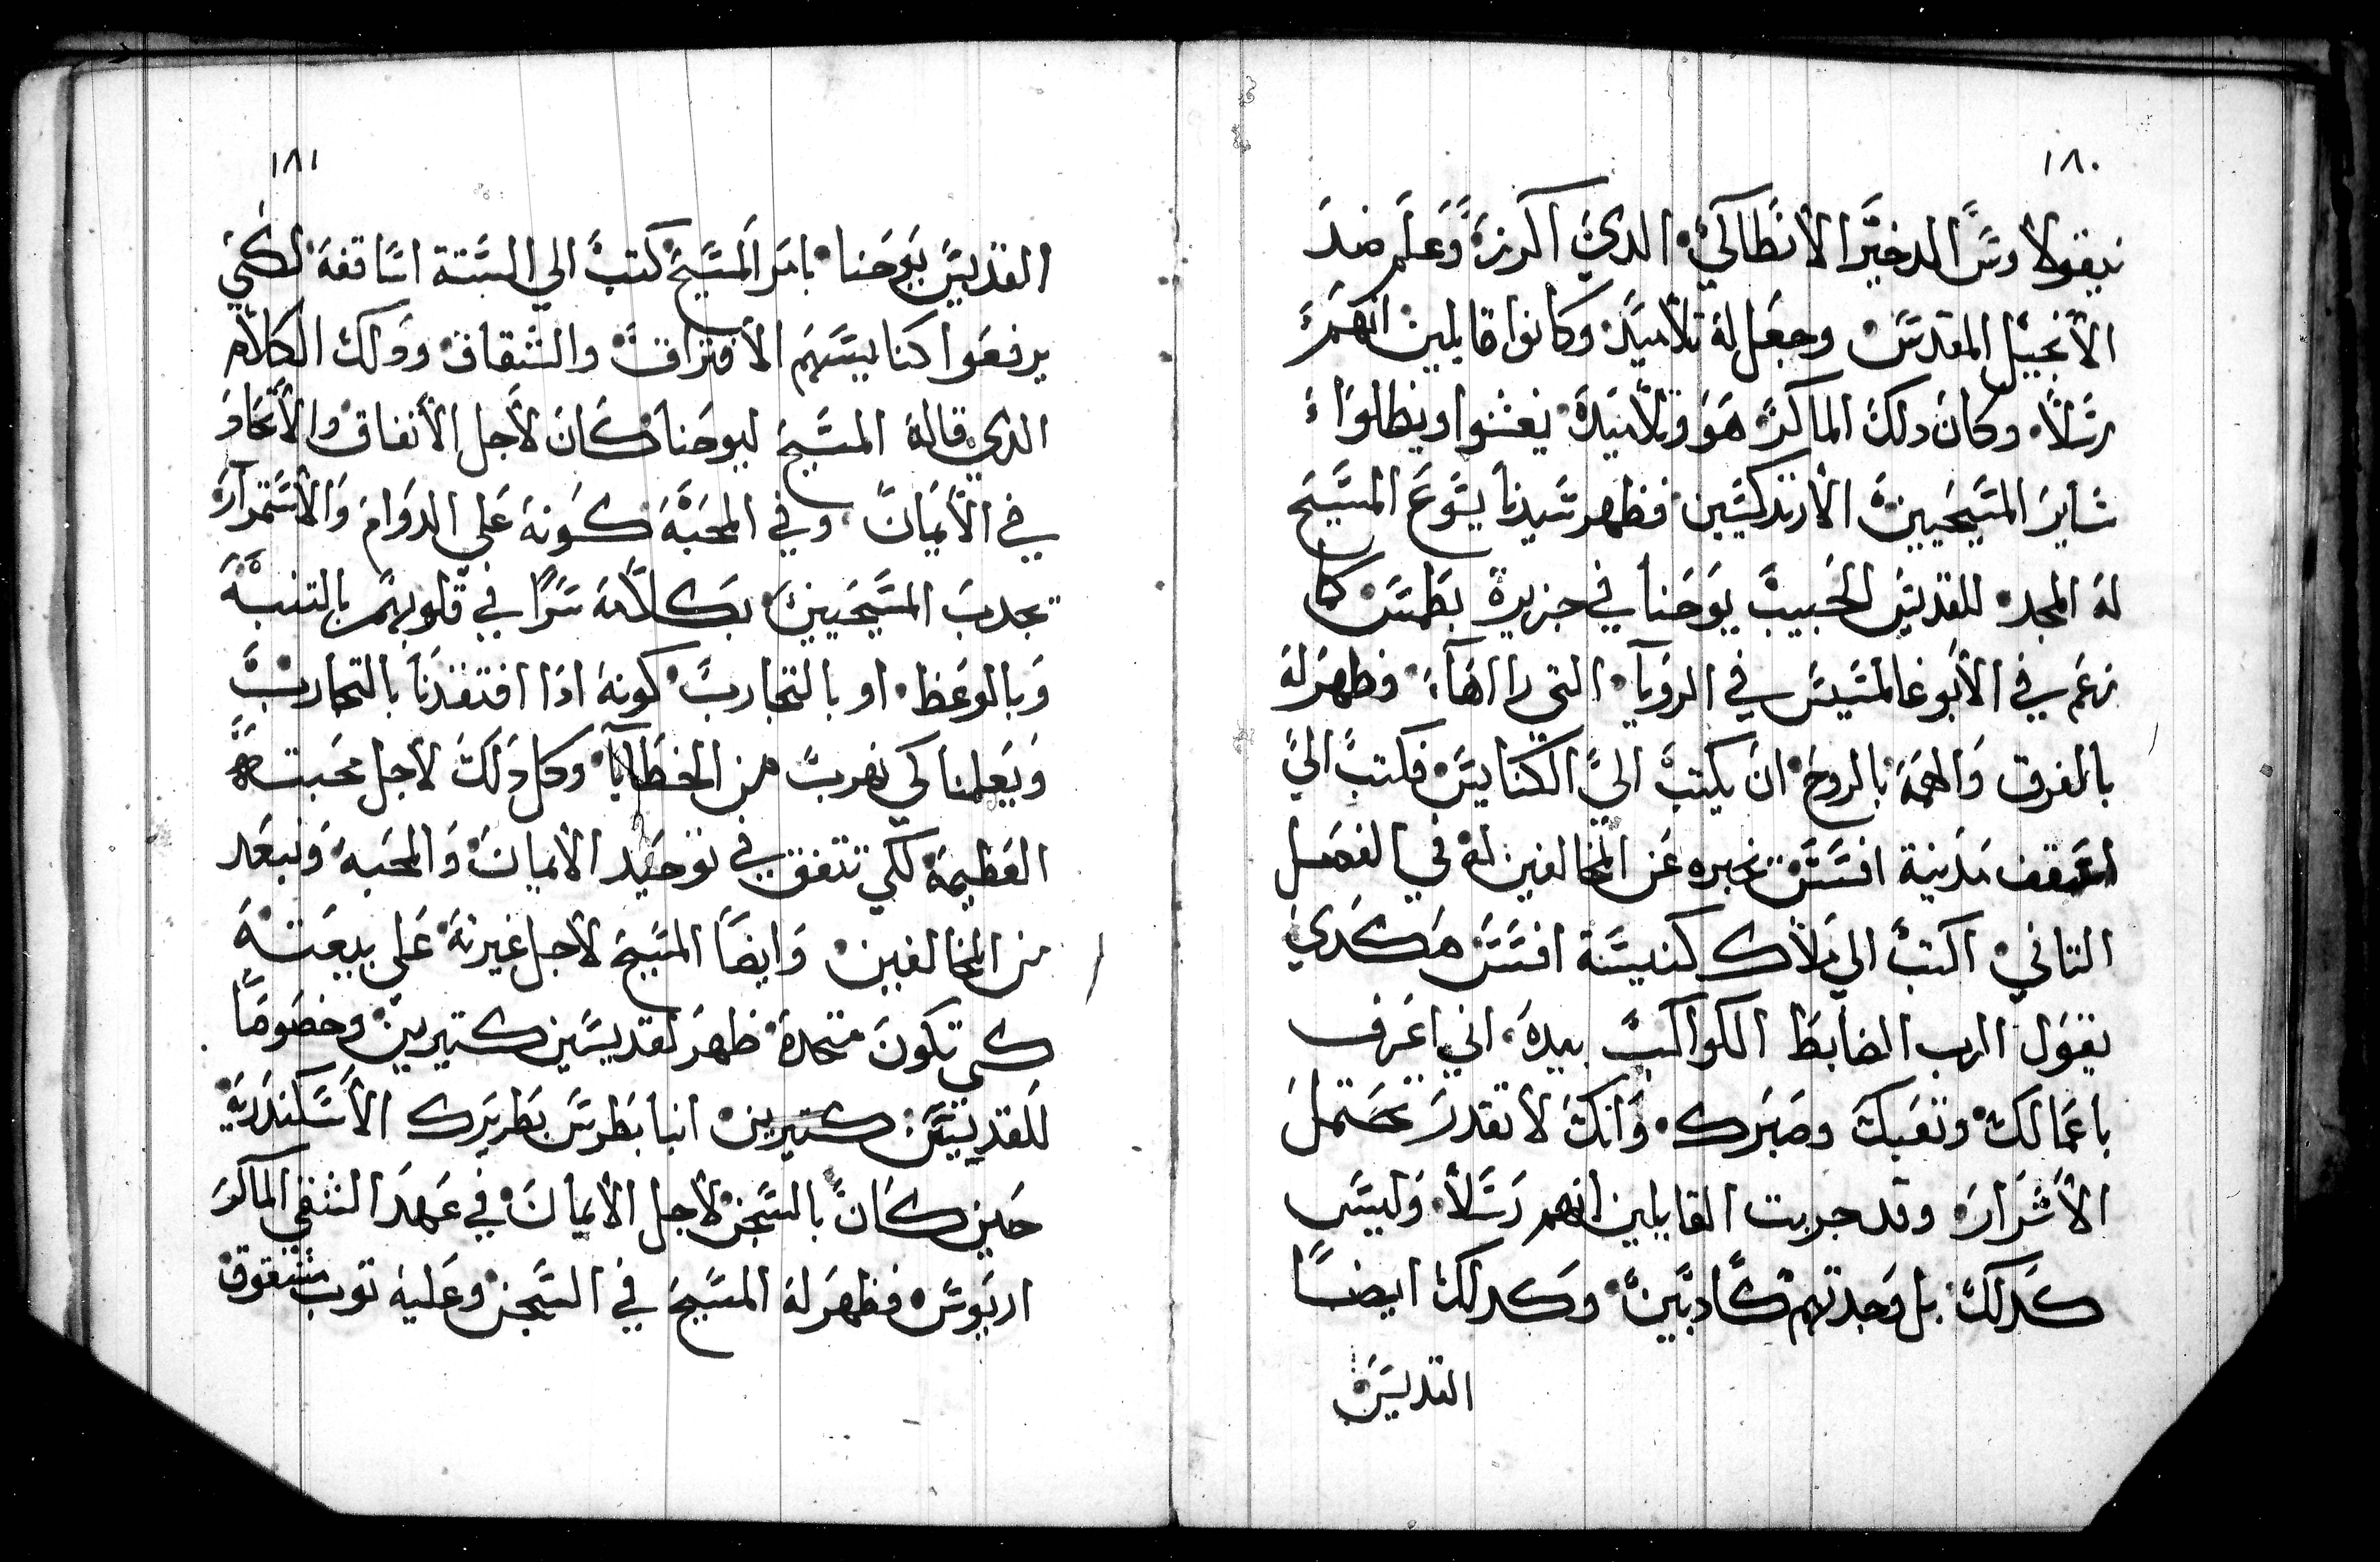 ١٨٠
نيقولاوس الدخيز الانطاكي الدي اكرز وعلم ضد
الانجيل المقدس وجعل له تلاميد وكانوا قايلين انهم
رسلا. وكان دلك الماكر هو وتلاميده يغشوا ويظلوا
ساير المسيحيين الارتدكسين فظهر سيدنا يسوع المسيح
له المجد للقديس الحبيب يوحنا في جزيرة بطمس كما
زعم في الابوغالمسيس في الرويا التي رااها. فظهر له
بالفرق والهمه بالروح ان يكتب الي الكنايس فكتب الي
اسقف مدينة افسس نخبره عن المخالفين له في الفصل
التاني اكتب الي ملاك كنيسة افسس هكدي
يقول الرب الضابط الكواكب بيده. اني اعرف
باعمالك وتعبك وصبرك. وانك لا تقدر تحتمل
الاشرار وقد جربت القايلين انهم رسلا. وليس
كدلك بل وجدتهم كادبين وكدلك ايضا
القديس
١٨١
القديس يوحنا بامر المسيح كتب الي الستة اساقفه لكي
يرفعوا كنايسهم الافتراق والشقاق ودلك الكلام
الدي قاله المسيح ليوحنا كان لاجل الاتفاق والاتحاد
في الايمان وفي المحبه كونه علي الدوام والاستمرار
تجدب المسيحيين بكلامه سرا في قلوبهم بالتنبه
وبالوعظ. او بالتجارب كونه ادا افتقدنا بالتجارب
ويعلمنا كي نهرب من الخطايا وكل دلك لاجل محبته
العظيمه لكي نتفق في توحيد الايمان والمحبه ونبعد
من المخالفين وايضا المسيح لاجل غيرته علي بيعته
كي تكون متحده ظهر لقديسين كتيرين وخصوصا
للقديس كتيرين انبا بطرس بطريرك الاسكندريه
حين كان بالسجن لاجل الايمان في عهد الشقي الماكر
اريوس فظهر له المسيح في السجن وعليه توب مشقوق